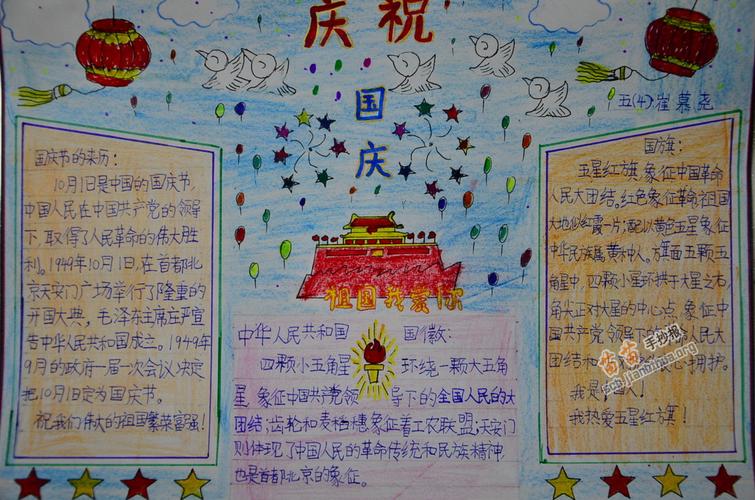 庆祝
国
庆
五(4)崔慕尧
国庆节的来历:
10月1日是中国的国庆节,
中国人民在中国共产党的领导
下,取得了人民革命的伟大胜
利。1949年10月1日,在首都北
京天安门广场举行了隆重的
开国大典,毛泽东主席庄严宣
告中华人民共和国成立。1949年
9月的政府一届一次会议决定
把10月1日定为国庆节。
祝我们伟大的祖国繁荣富强!
祖国我爱你
中华人民共和国 国徽:
四颗小五角星 环绕一颗大五角
星,象征中国共产党领 导下的全国人民的大
团结;齿轮和麦稻穗象征着工农联盟;天安门
则体现了中国人民的革命传统和民族精神,
也是首都北京的象征。
国旗:
五星红旗象征中国革命
人民大团结。红色象征革命,祖国
大地似红霞一片;配以黄色五星象征
中华民族属黄种人。旗面五颗五
角星中,四颗小星环拱于大星之右,
角尖正对大星的中心点,象征中
国共产党领导下的 人民大
团结和 心拥护。
我是 国人!
我热爱五星红旗!
苗苗手抄报
scb.jinbima.org